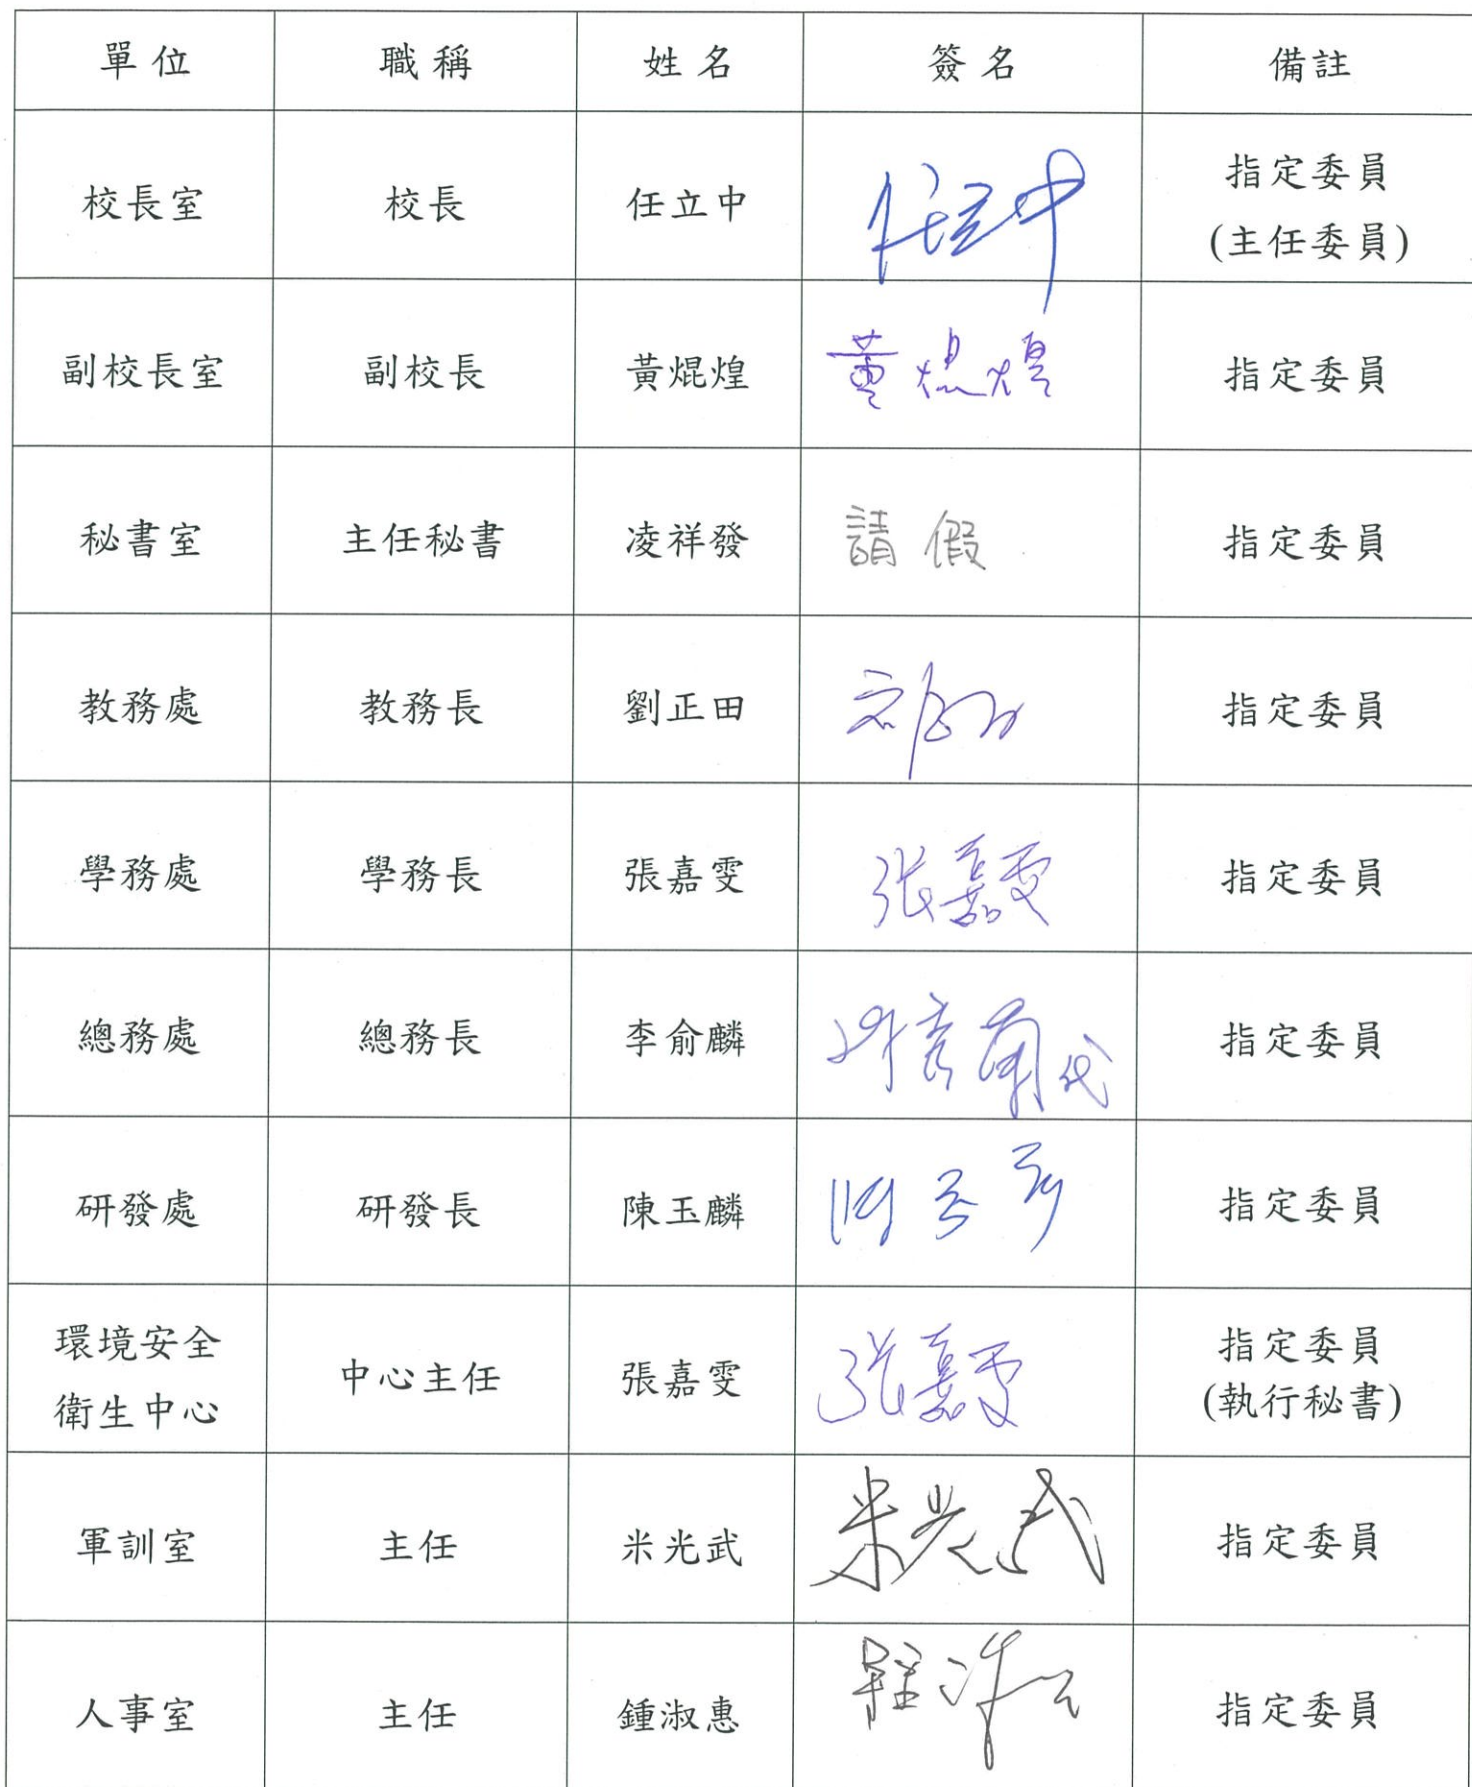 單位 職稱 姓名 簽名 備註
校長室 校長 任立中 任立中 指定委員
(主任委員)
副校長室 副校長 黃焜煌 黃焜煌 指定委員
秘書室 主任秘書 凌祥發 請假 指定委員
教務處 教務長 劉正田 指定委員
學務處 學務長 張嘉雯 張嘉雯 指定委員
總務處 總務長 李俞麟 代 指定委員
研發處 研發長 陳玉麟 指定委員
環境安全
衛生中心 中心主任 張嘉雯 張嘉雯 指定委員
(執行秘書)
軍訓室 主任 米光武 米光武 指定委員
人事室 主任 鍾淑惠 指定委員